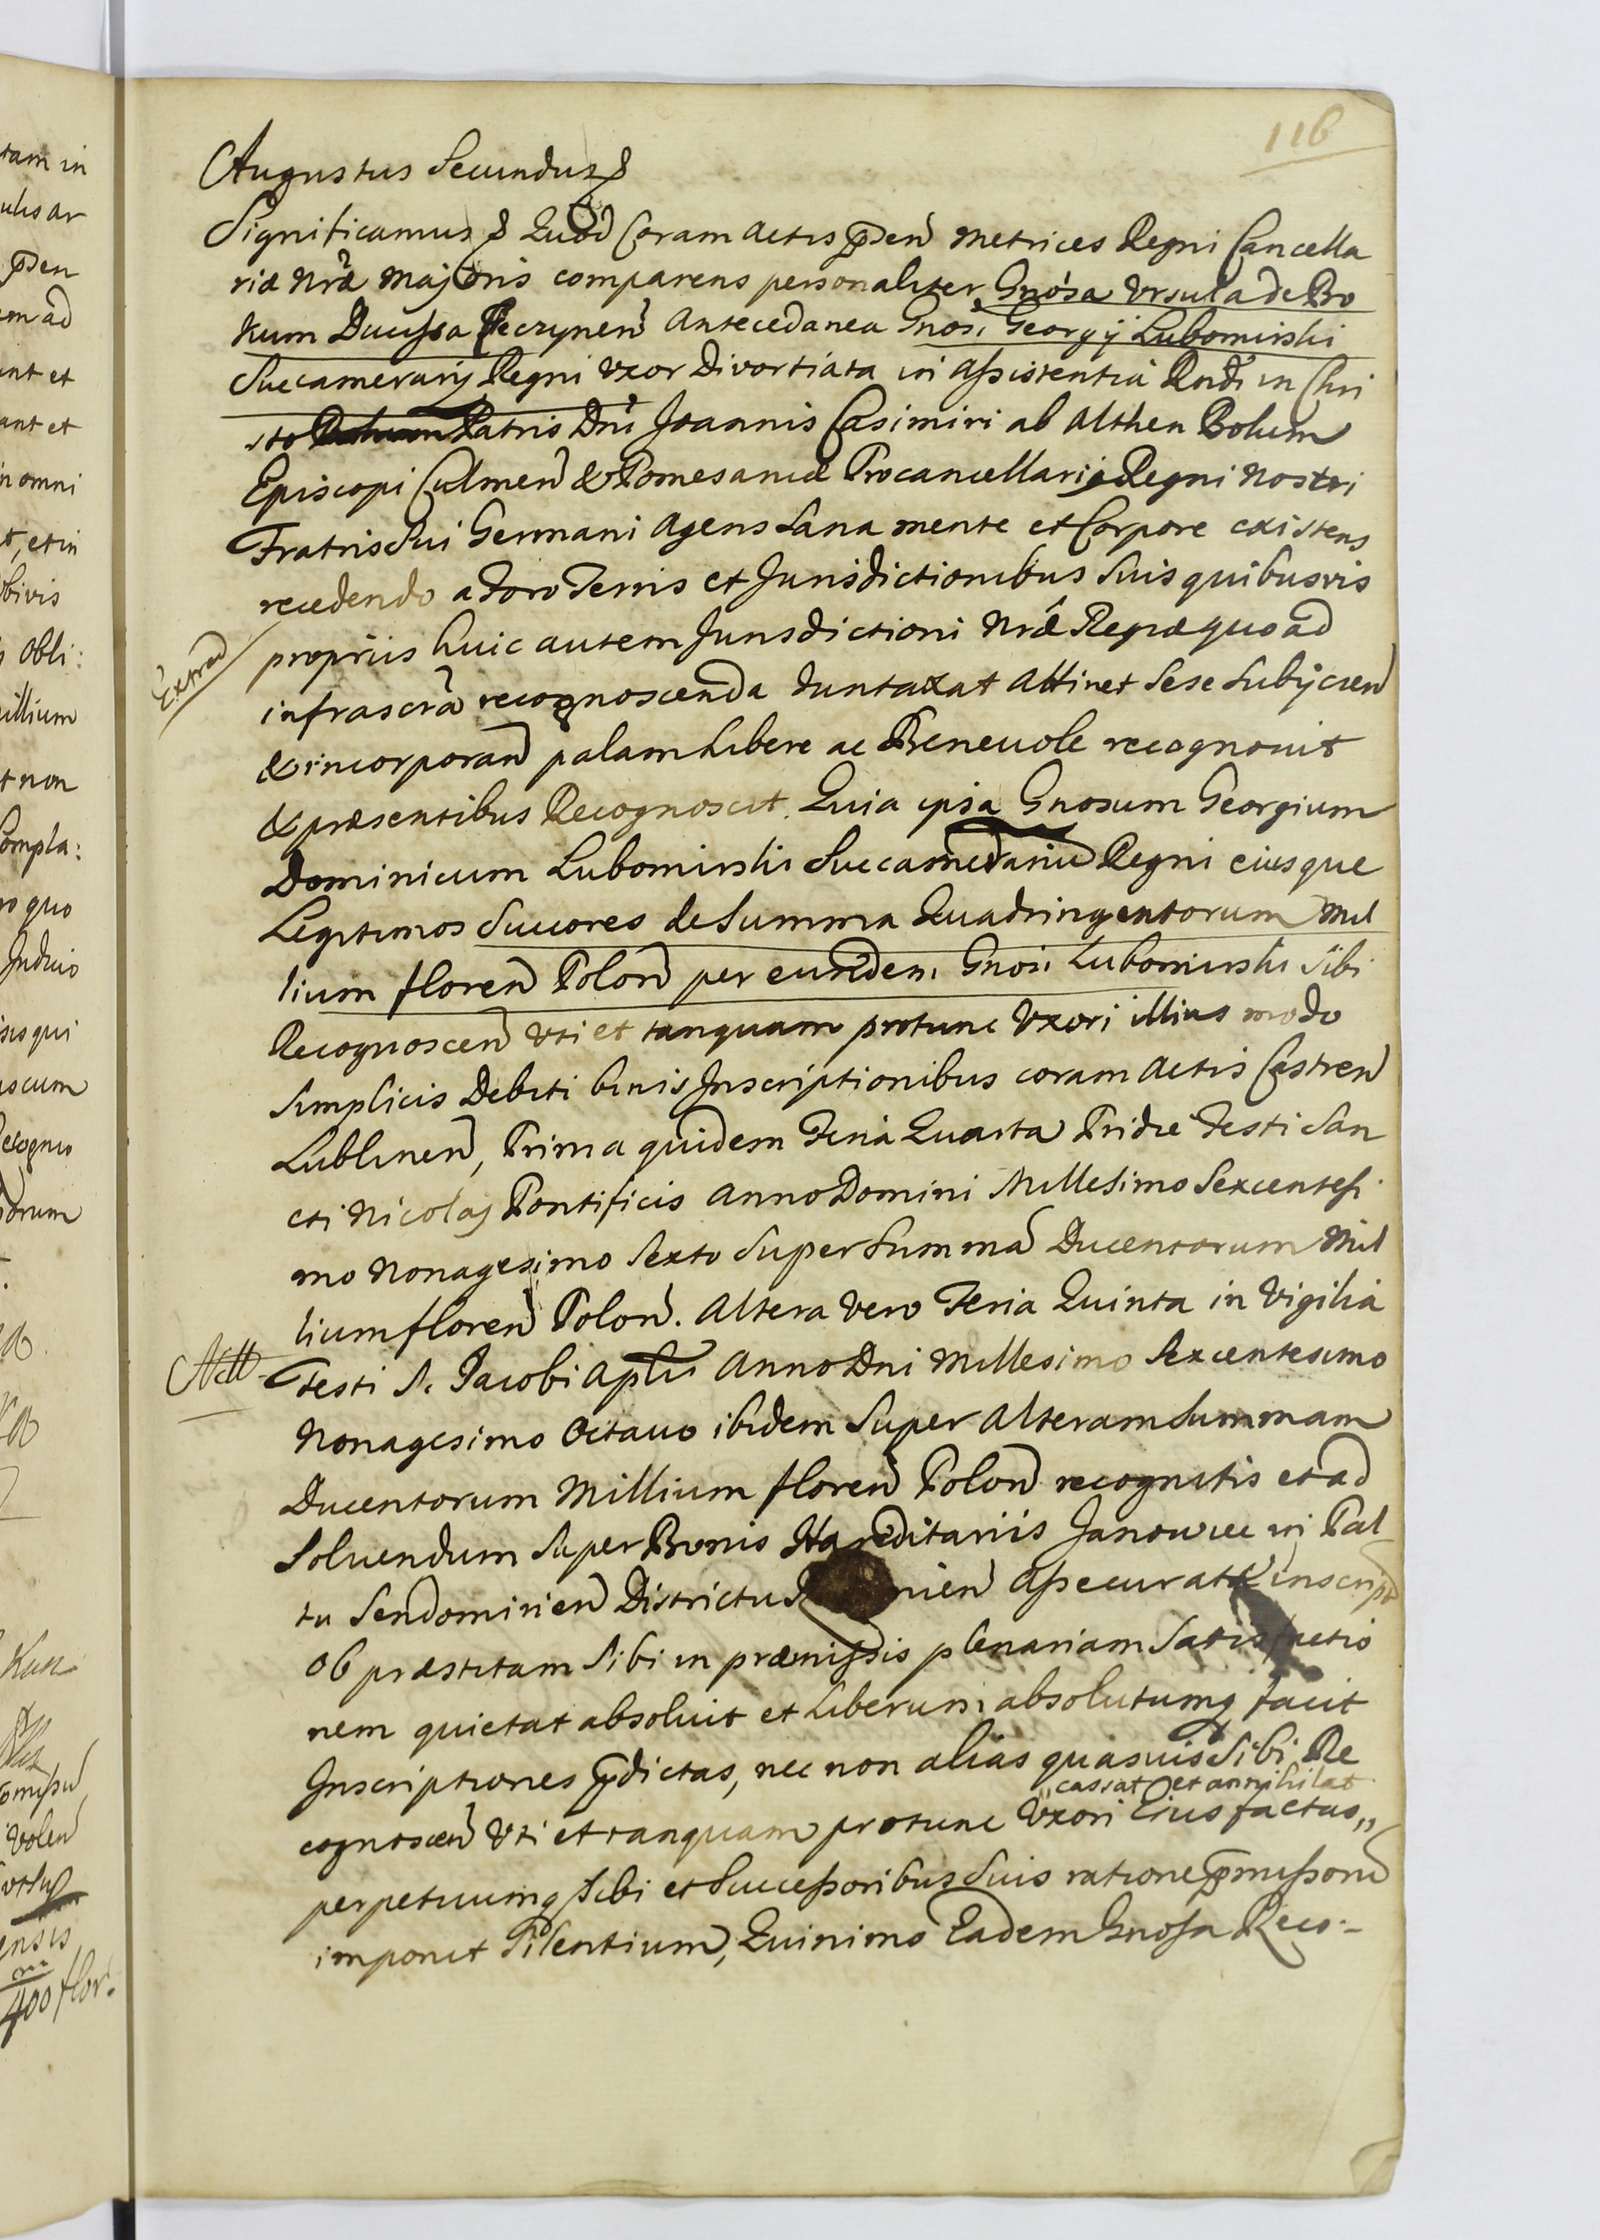 116
Augustus Secundus &
Significamus & Quod Coram Actis pnden Metrices Regni Cancella
riæ Nræ Majoris comparens personaliter Gnosa Ursula de Bo
kum Ducissa Antecedanea Gnosi Georgij Lubomirski
Succamerarij Regni Uxor Divortiata in Assistentia Rndi in Chri
sto Patris Dni Joannis Casimiri ab Althen Bokum
Episcopi Culmen & Pomesaniæ Procancellarij Regni Nostri
Fratris Sui Germani Agens Sana mente et Corpore existens
recedendo a Foro Terris et Jurisdictionibus Suis quibusvis
propriis huic autem Jurisdictioni Nræ Regiæ quo ad
Extrad
infrascra recognoscenda duntaxat Attinet Sese Subijcien
& incorporan palam Libere ac Benevole recognovit
& præsentibus Recognoscit. Quia ipsa Gnosum Georgium
Dominicum Lubomirski Succamerariu Regni eiusque
Legitimos Succores de Summa Quadringentorum Mil
lium floren Polon per eundem Gnos. Lubomirski Sibi
Recognoscen Uti et tanquam protunc Uxori illius modo
Simplicis Debiti binis Inscriptionibus coram Actis Castren
Lublinen, Prima quidem Feria Quarta Pridie Festi San
cti Nicolaj Pontificis Anno Domini Millesimo Sexcentesi
mo Nonagesimo Sexto Super Summa Ducentorum Mil
lium floren Polon. Altera vero Feria Quinta in Vigilia
Festi S. Jacobi Apli Anno Dni Millesimo Sexcentesimo
Nonagesimo Octavo ibidem Super Alteram Summam
Ducentorum Millium floren Polon recognitis et ad
Solvendum Super Bonis Hæreditariis Janowiec in Pal
tu Sendomirien Districtus nien Assecurat inscript
ob præstitam Sibi in præmissis plenariam Satisfactio
nem quietat absolvit et Liberum absolutumq facit
Inscriptiones pdictas, nec non alias quasvis Sibi Re
"cassat et annihilat
cognoscen Uti et tanquam protunc Uxori Eius factas"
perpetuumq Sibi et Successoribus Suis ratione pmissoru
imponit Silentium, Quinimo Eadem Gnosa Reco: